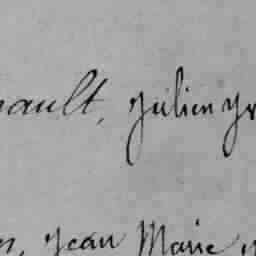 nault, Julien Yv
n, Jean Marie